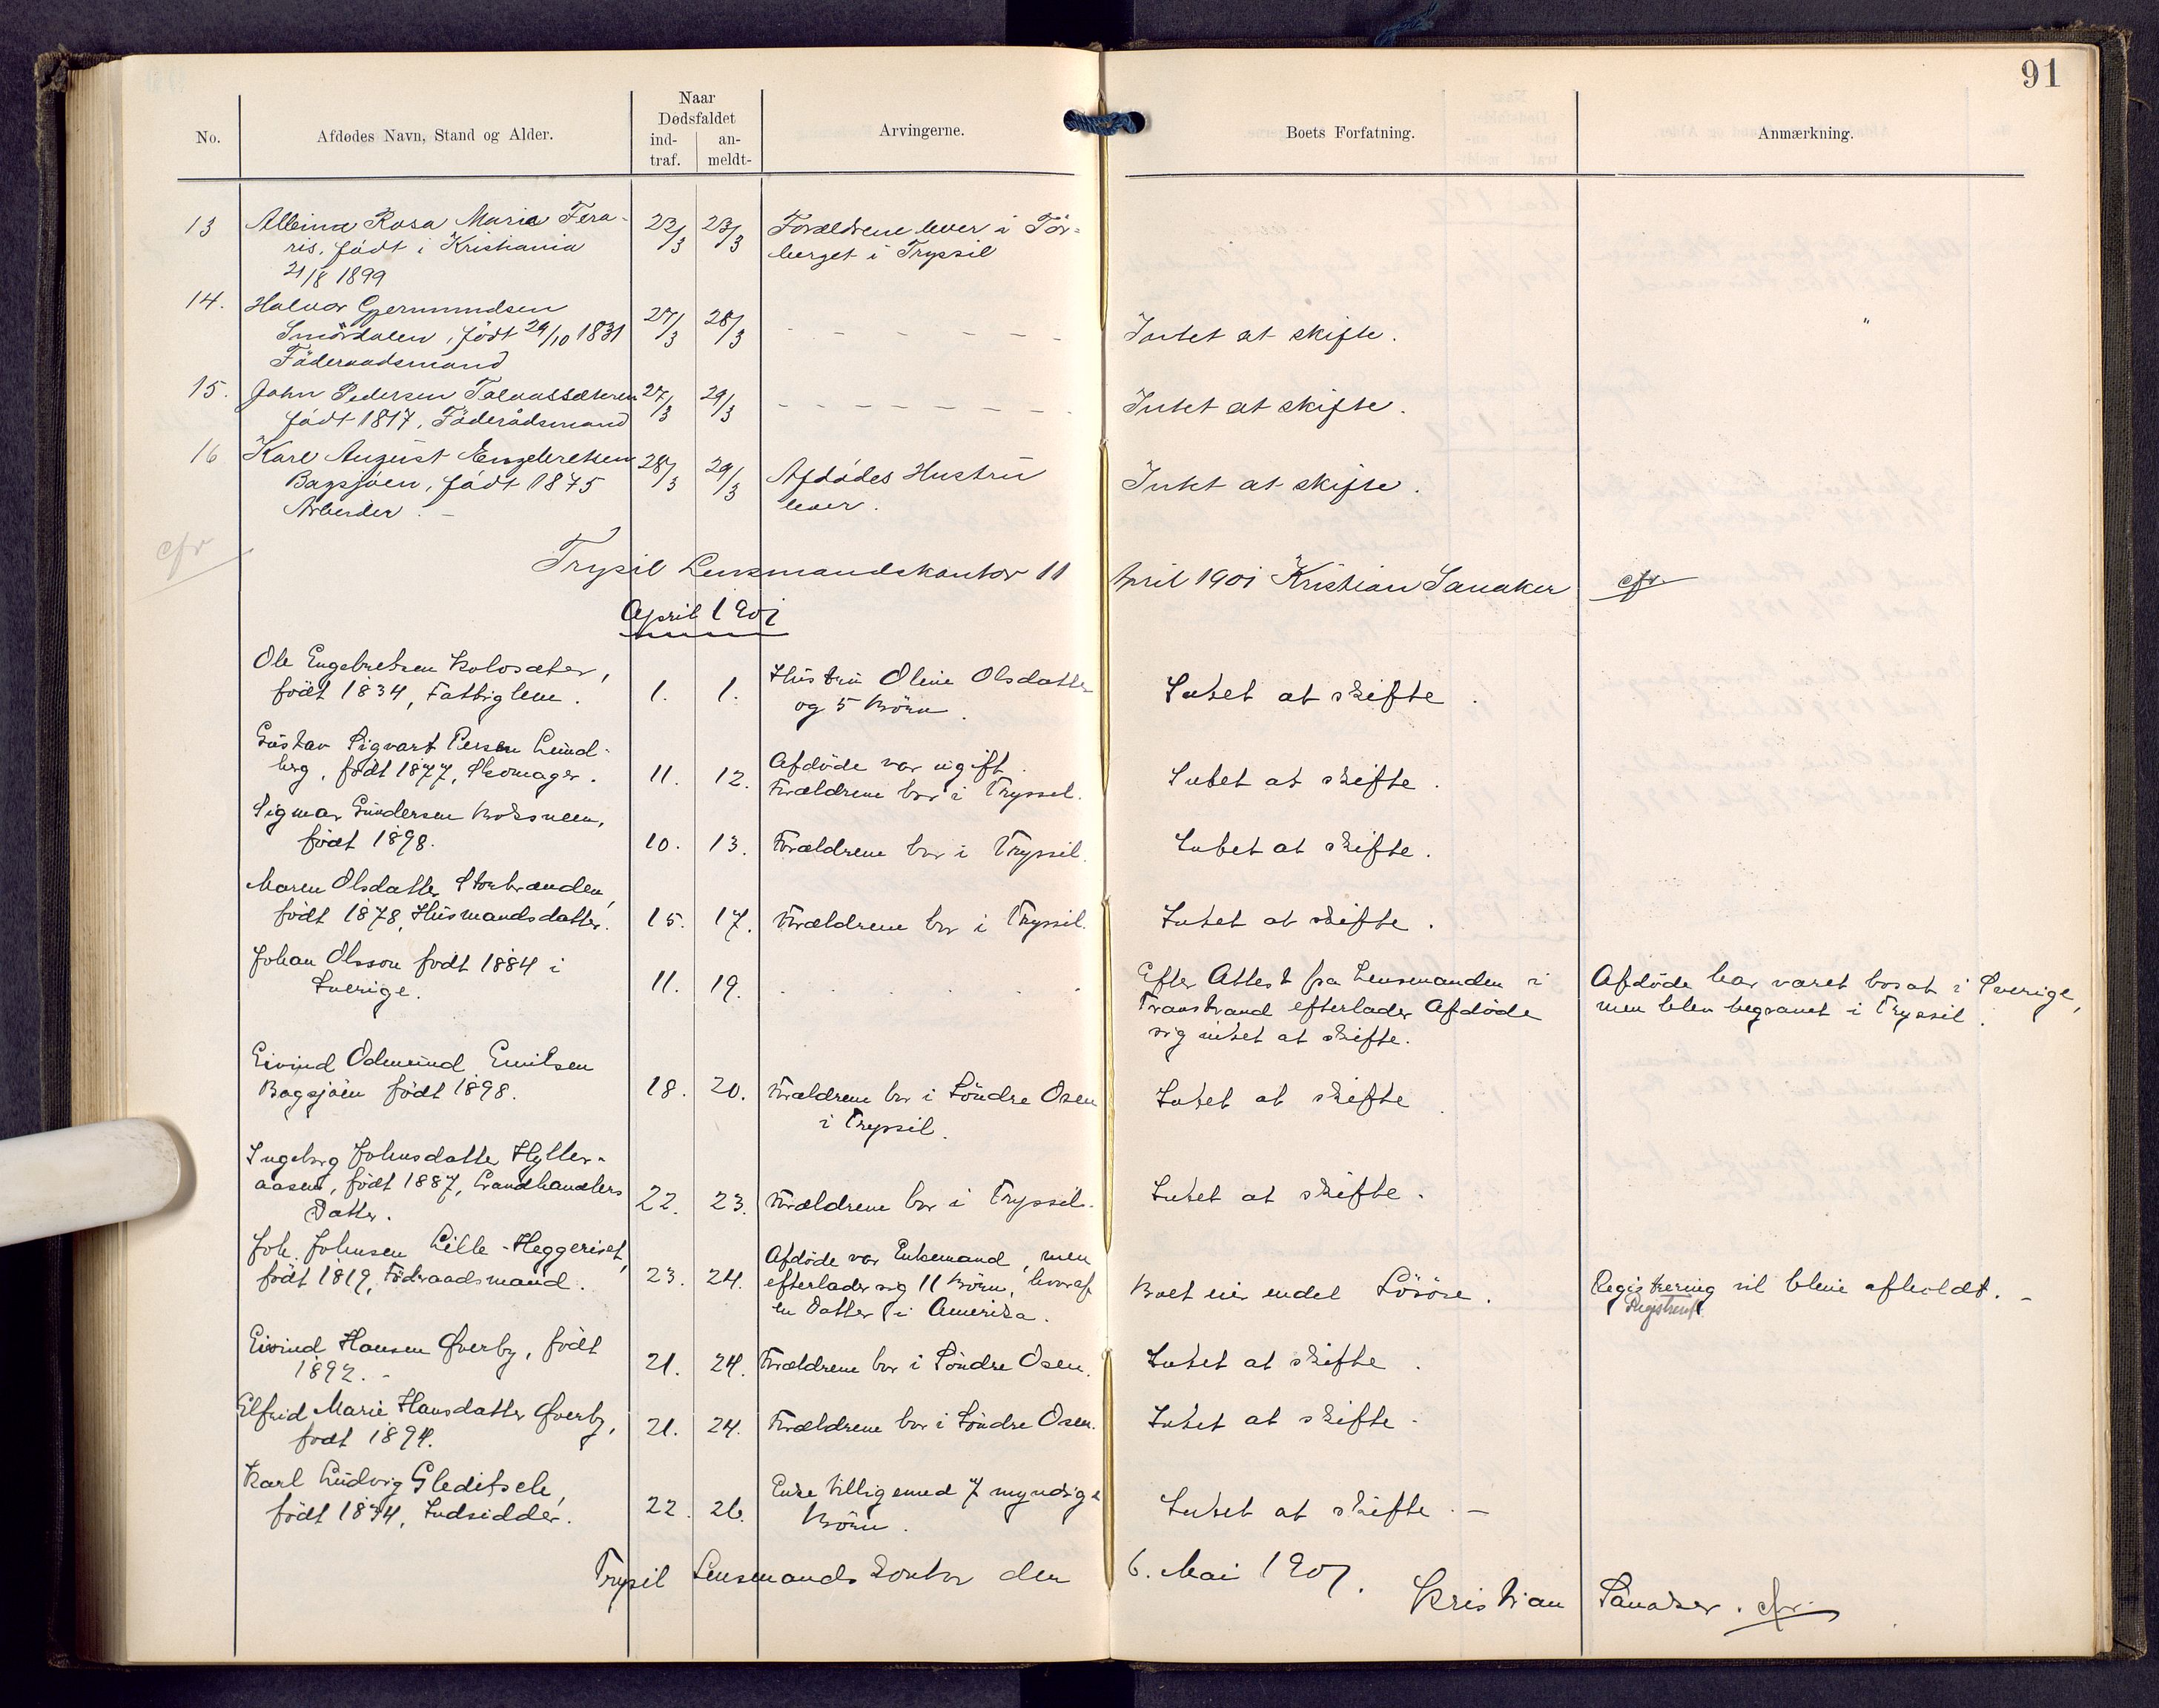 91
Naar
Dødsfaldet
No. Afdødes Navn, Stand og Alder. ind- an- Arvingerne. Boets Forfatning. Anmærkning.
traf. meldt-
13 Albina Rosa Maria Fera- 22/3 23/3 Forældrene lever i Tör-
ris, født i Kristiania berget i Trysil
21/8 1899
14. Halvor Gjermundsen 27/3 28/3 - - - - - - Intet at skifte. "
Smördalen, født 29/10 1831
Föderaadsmand
15. John Pedersen Tolvalssæteren 27/3 29/3 - - - - - - - - Intet at skifte.
født 1817, Föderådsmand
16 Karl August Engebretsen 28/3 29/3 Afdødes Hustru Intet at skifte.
Bagsjøen, født 1875 lever.
Arbeider. -
cfr
Trysil Lensmandskontor 11 April 1901 Kristian Sanaker cfr.
April 1901
Ole Engebretsen Kolosæter, 1. 1. Hustru Oline Olsdatter Intet at skifte.
født 1834, Fattiglem. og 5 Börn.
Gustav Sigvart Persen Lund- 11. 12. Afdöde var ugift. Intet at skifte.
berg, født 1877, Skomager. Forældrene bor i Tryssil.
Sigmar Gundersen Moksneen,
født 1898. 10. 13. Forældrene bor i Tryssil. Intet at skifte.
Maren Olsdatter Storbranden,
födt 1878, Husmandsdatter. 15. 17. Forældrene bor i Tryssil. Intet at skifte.
Johan Olsson født 1884 i 11. 19. . . . . . . Efter Attest fra Lensmanden i Afdöde har været bosat i Sverige,
Sverige. Transtrand efterlader Afdöde men blev begravet i Tryssil.
sig intet at skifte.
Eivind Odmund Emilsen
Bagsjöen født 1898. 18. 20. Forældrene bor i Söndre Osen Intet at skifte.
i Tryssil.
Ingeborg Johnsdatter Hyller-
aasen, födt 1887, Landhandlers 22. 23. Forældrene bor i Tryssil. Intet at skifte.
Datter.
Joh. Johnsen Lille-Heggeriset, Afdöde var Enkemand, men
födt 1819, Föderaadsmand. 23. 24. efterlader sig 11 Börn, hvoraf Boet eier endel Lösöre. Registrering vil blive afholdt. -
en Datter i Amerika. Registreret
Eivind Hansen Øverby, födt
1892. - 21. 24. Forældrene bor i Söndre Osen. Intet at skifte.
Elfrid Marie Hansdatter Øverby, 21. 24. Forældrene bor i Söndre Osen. Intet at skifte.
født 1894.
Karl Ludvig Gleditsch, Enke tilligemed 7 myndige
födt 1834, Indsidder. 22. 26. Börn. Intet at skifte. -
Trysil Lensmandskontor den 6. Mai 1901. Kristian Sanaker. cfr.